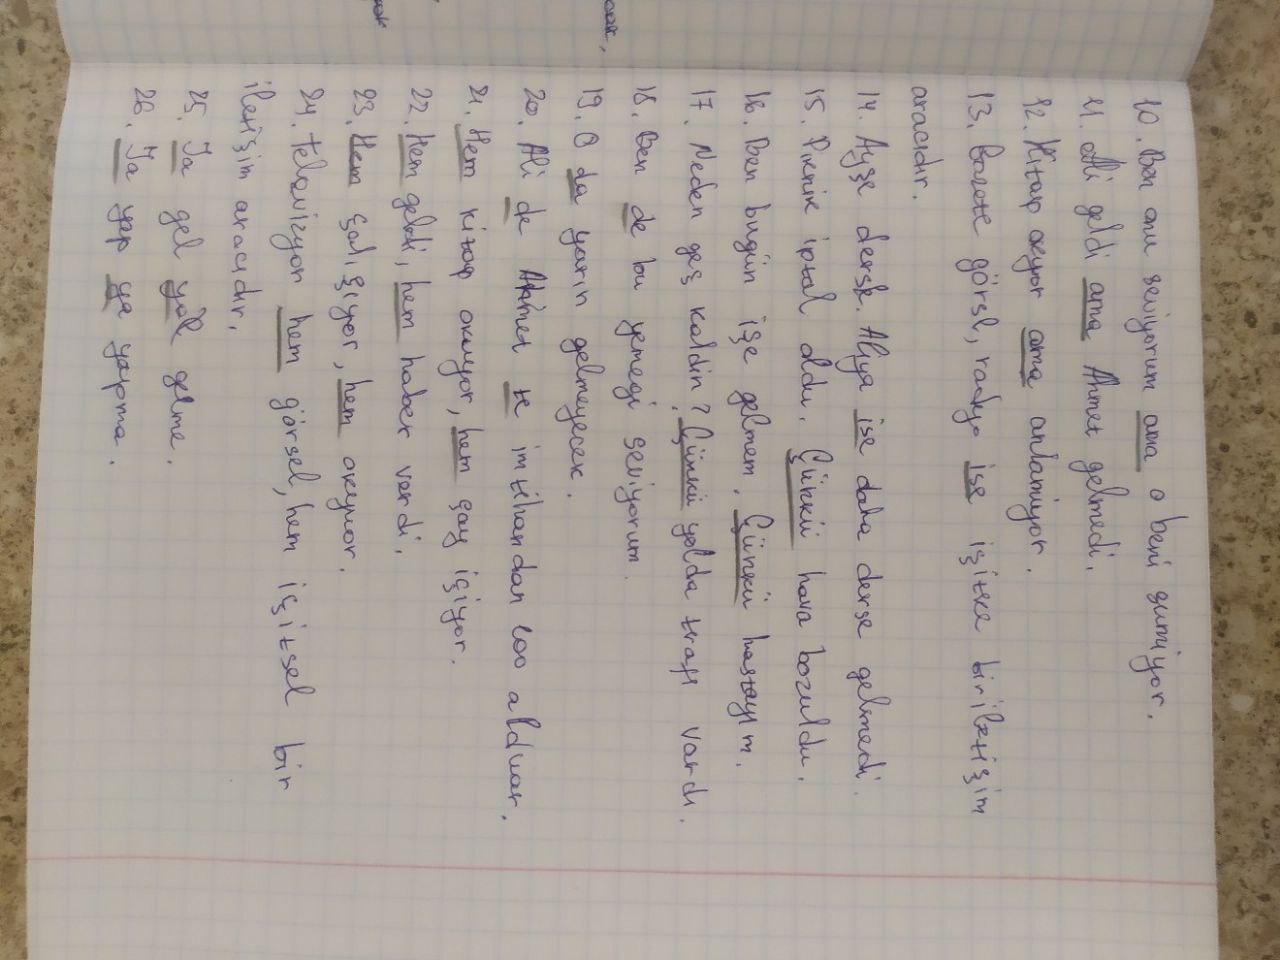 10. Ben onu seviyorum ama o beni sumiyor.
11. Ali geldi ama Ahmet gelmedi.
12. Kitap okuyor ama anlamıyor.
13. Gazete görsl, radyo ise işitke bir iletişim
aracıdır.
14. Ayşe derse. Alya ise daha derse gelmedi.
15. Piknik iptal oldu. Çünkü hava bozuldu.
16. Ben bugün işe gelmem. Çünkü hastayım.
17. Neden geç kaldin? Çünkü yolda trafı vardı.
18. Ben de bu yemegi seviyorum.
19. O da yarın gelmeyecek.
20. Ali de Ahmet te imtihandan 100 aldılar.
21. Hem kitap okuyor, hem çay içiyor.
22. Hem geldi, hem haber verdi.
23. Hem çalışıyor, hem okuyor.
24. Televizyon hem görsel, hem işitsel bir
iletişim aracıdır.
25. Ya gel ya gelme.
26. Ya yap ya yapma.